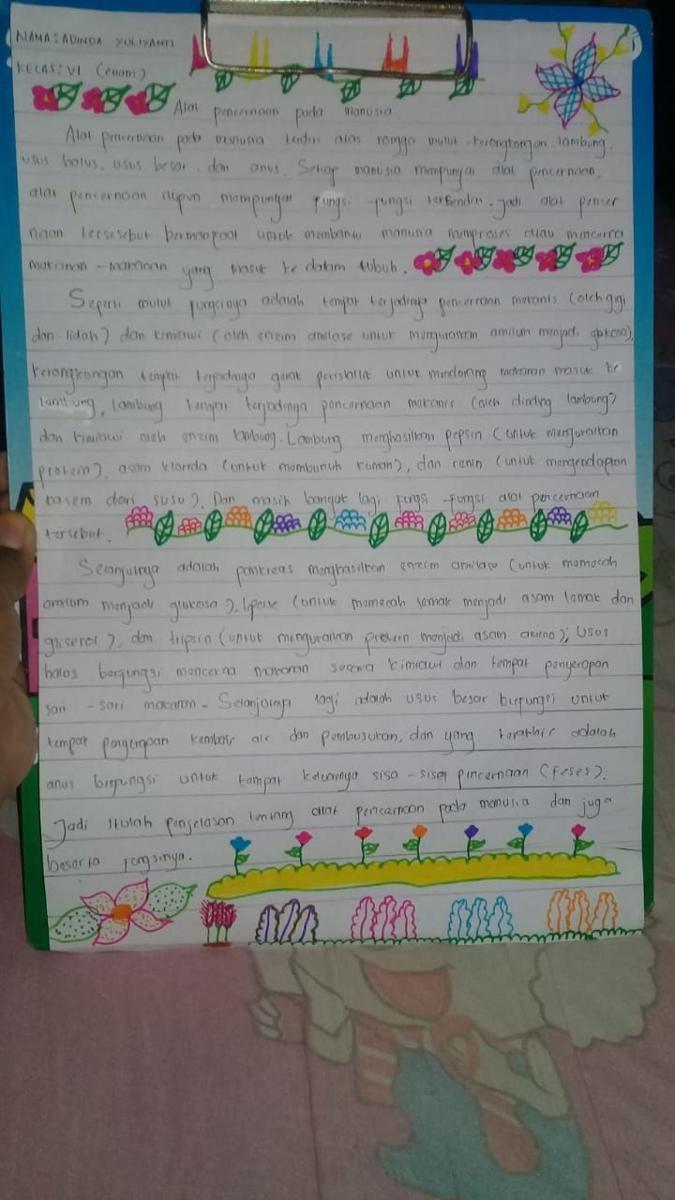 NAMA : ADINDA YULIYANTI
KELAS : VI (enam)
Alat pencernaan pada manusia
Alat pencernaan pada manusia terdiri atas rongga mulut, kerongkongan, lambung,
usus halus, usus besar, dan anus. Setiap manusia mempunyai alat pencernaan,
alat pencernaan itupun mempunyai fungsi-fungsi tersendiri. Jadi alat pencer
naan tersesebut bermanpaat untuk membantu manusia memproses atau mencerna
makanan-makanan yang masuk ke dalam tubuh.
Seperti mulut fungsinya adalah tempat terjadinya pencernaan mekanis (oleh gigi
dan lidah) dan kimiawi (oleh enzim amilase untuk menguraikan amilum menjadi glukosa),
kerongkongan tempat terjadinya gerak peristaltik untuk mendorong makanan masuk ke
lambung, lambung tempat terjadinya pencernaan mekanis (oleh dinding lambung)
dan kimiawi oleh enzim lambung. Lambung menghasilkan pepsin (untuk menguraikan
protein), asam klorida (untuk membunuh kuman), dan renin (untuk mengendapkan
kasein dari susu). Dan masih banyak lagi fungsi-fungsi alat pencernaan
tersebut.
Selanjutnya adalah pankreas menghasilkan enzim amilase (untuk memecah
amilum menjadi glukosa), lipase (untuk memecah lemak menjadi asam lemak dan
gliserol), dan tripsin (untuk menguraikan protein menjadi asam amino); Usus
halus berfungsi mencerna makanan secara kimiawi dan tempat penyerapan
sari-sari makanan. Selanjutnya lagi adalah usus besar berfungsi untuk
tempat penyerapan kembali air dan pembusukan, dan yang terakhir adalah
anus berfungsi untuk tempat keluarnya sisa-sisa pencernaan (feses).
Jadi itulah penjelasan tentang alat pencernaan pada manusia dan juga
beserta fungsinya.